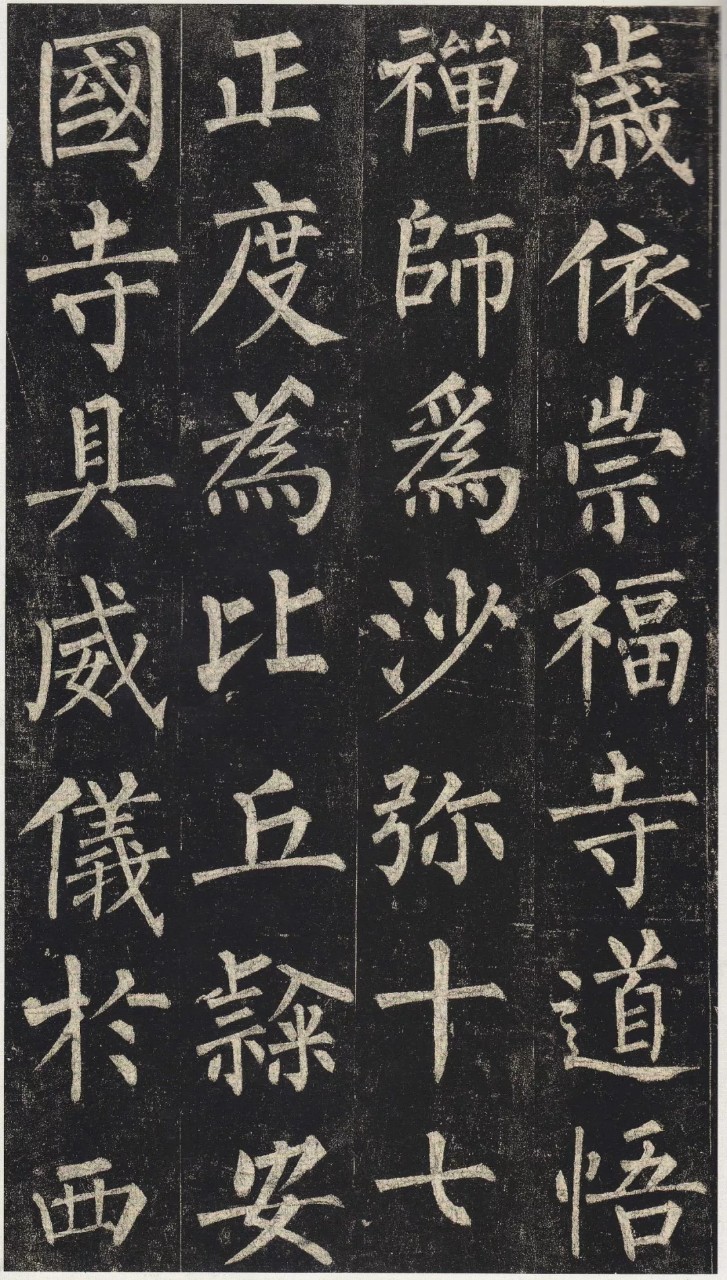 歳依崇福寺道悟
禪師爲沙弥十七
正度為比丘𥘶安
國寺具威儀於西